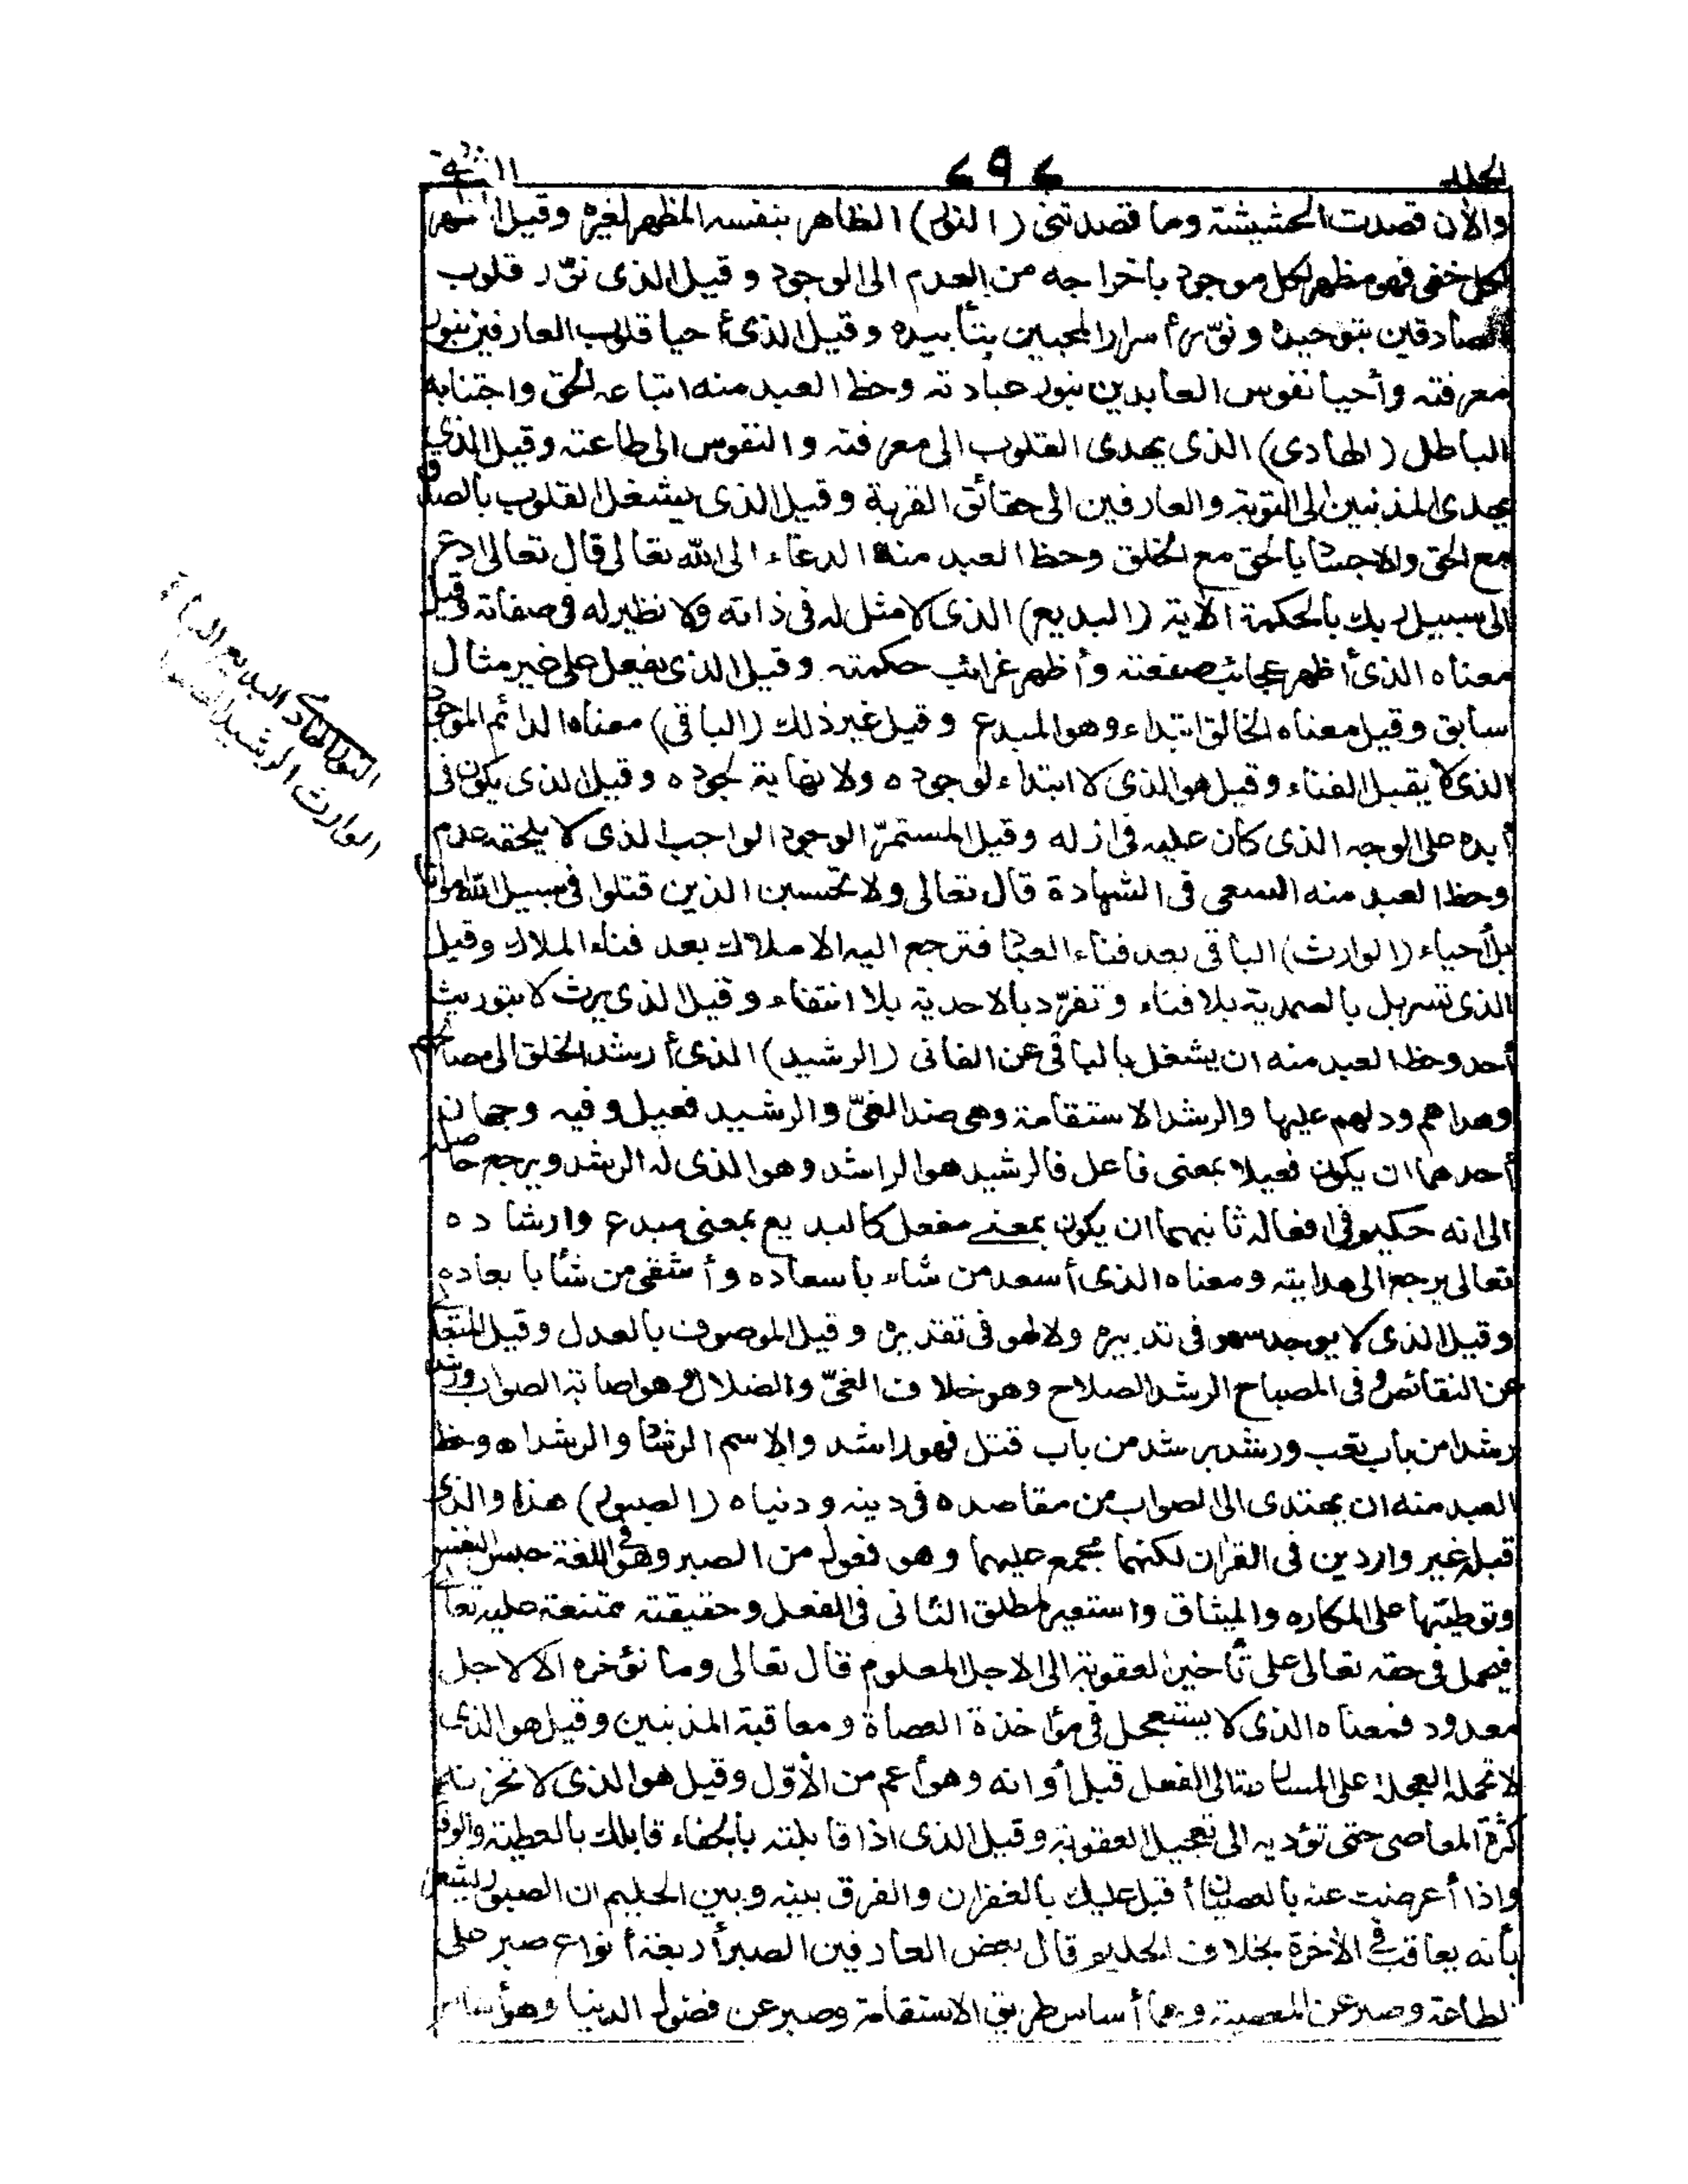 الجلد ٢٩٢ الثانى
والأن قصدت الحشيشة وما قصدتنى (النور) الظاهر بنفسه المظهر لغيره وقيل اظهر
لكل خفى فهو مظهر لكل موجود باخراجه من العدم الى الوجود وقيل الذى نوّر قلوب
الصادقين بتوحيده ونوّر أسرار المحبين بتأييده وقيل الذى أحيا قلوب العارفين بنور
معرفته وأحيا نفوس العابدين بنور عبادته وحظ العبد منه اتباعه الحق واجتنابه
الباطل (الهادى) الذى يهدى القلوب الى معرفته والنفوس الى طاعته وقيل الذى
يهدى المذنبين الى التوبة والعارفين الى حقائق القربة وقيل الذى يشغل القلوب بالصدق
مع الحق والاجساد بالحق مع الخلق وحظ العبد منه الدعاء الى الله تعالى قال تعالى ادع
الى سبيل ربك بالحكمة الآية (البديع) الذى لا مثل له فى ذاته ولا نظير له فى صفاته وقيل
معناه الذى أظهر عجائب صنعته وأظهر غرائب حكمته وقيل الذى يفعل على غير مثال
سابق وقيل معناه الخالق ابتداء وهو المبدع وقيل غير ذلك (الباقى) معناه الدائم الموجود
الذى لا يقبل الفناء وقيل هو الذى لا ابتداء لوجوده ولا نهاية لجوده وقيل الذى يكون فى
أبده على الوجه الذى كان عليه فى ازله وقيل المستمرّ الوجود الواجب الذى لا يلحقه عدم
وحظ العبد منه السعى فى الشهادة قال تعالى ولا تحسبن الذين قتلوا فى سبيل الله امواتا
بل أحياء (الوارث) الباقى بعد فناء العباد فترجع اليه الاملاك بعد فناء الملاك وقيل
الذى تسربل بالصمدية بلا فناء وتفرّد بالاحدية بلا انتفاء وقيل الذى يرث لا بتوريث
أحد وحظ العبد منه ان يشغل بالباقى عن الفانى (الرشيد) الذى أرشد الخلق الى مصالحهم
وهداهم ودلهم عليها والرشد الاستقامة وهى ضد الغىّ والرشيد فعيل وفيه وجهان
أحدهما ان يكون فعيلا بمعنى فاعل فالرشيد هو الراشد وهو الذى له الرشد ويرجع حاصله
الى انه حكيم فى افعاله ثانيهما ان يكون بمعنى مفعل كالبديع بمعنى مبدع وارشاده
تعالى يرجع الى هدايته ومعناه الذى أسعد من شاء باسعاده وأشقى من شاء بابعاده
وقيل الذى لا يوجد سهو فى تدبيره ولا لهو فى تقديره وقيل الموصوف بالعدل وقيل المتعالى
عن النقائص وفى المصباح الرشد الصلاح وهو خلاف الغىّ والضلال وهو اصابة الصواب ورشد
رشدا من باب تعب ورشد يرشد من باب قتل فهو راشد والاسم الرشاد والرشد اه وحظ
العبد منه ان يهتدى الى الصواب من مقاصده فى دينه ودنياه (الصبور) هذا والذى
قبله غير واردين فى القرآن لكنهما مجمع عليهما وهو فعول من الصبر وهو فى اللغة حبس النفس
وتوطيتها على المكاره والميثاق واستعير لمطلق الثانى فى الفعل وحقيقته ممتنعة عليه تعالى
فيحمل فى حقه تعالى على تأخير العقوبة الى الاجل المعلوم قال تعالى وما نؤخره الا لاجل
معدود فمعناه الذى لا يستعجل فى مؤاخذة العصاة ومعاقبة المذنبين وقيل هو الذى
لا تحمله العجلة على المسارعة الى الفعل قبل أوانه وهو أعم من الأوّل وقيل هو الذى لا تحزنه
كثرة المعاصى حتى تؤديه الى تعجيل العقوبة وقيل الذى اذا قابلته بالجفاء قابلك بالعطية والوفا
واذا أعرضت عنه بالعصيان أقبل عليك بالغفران والفرق بينه وبين الحليم ان الصبور يشعر
بأنه يعاقب فى الآخرة بخلاف الحليم قال بعض العارفين الصبر أربعة أنواع صبر على
الطاعة وصبر عن المعصية وهما أساس طريق الاستقامة وصبر عن فضول الدنيا وهو أساس
النور الهادى البديع الباقى
الوارث الرشيد